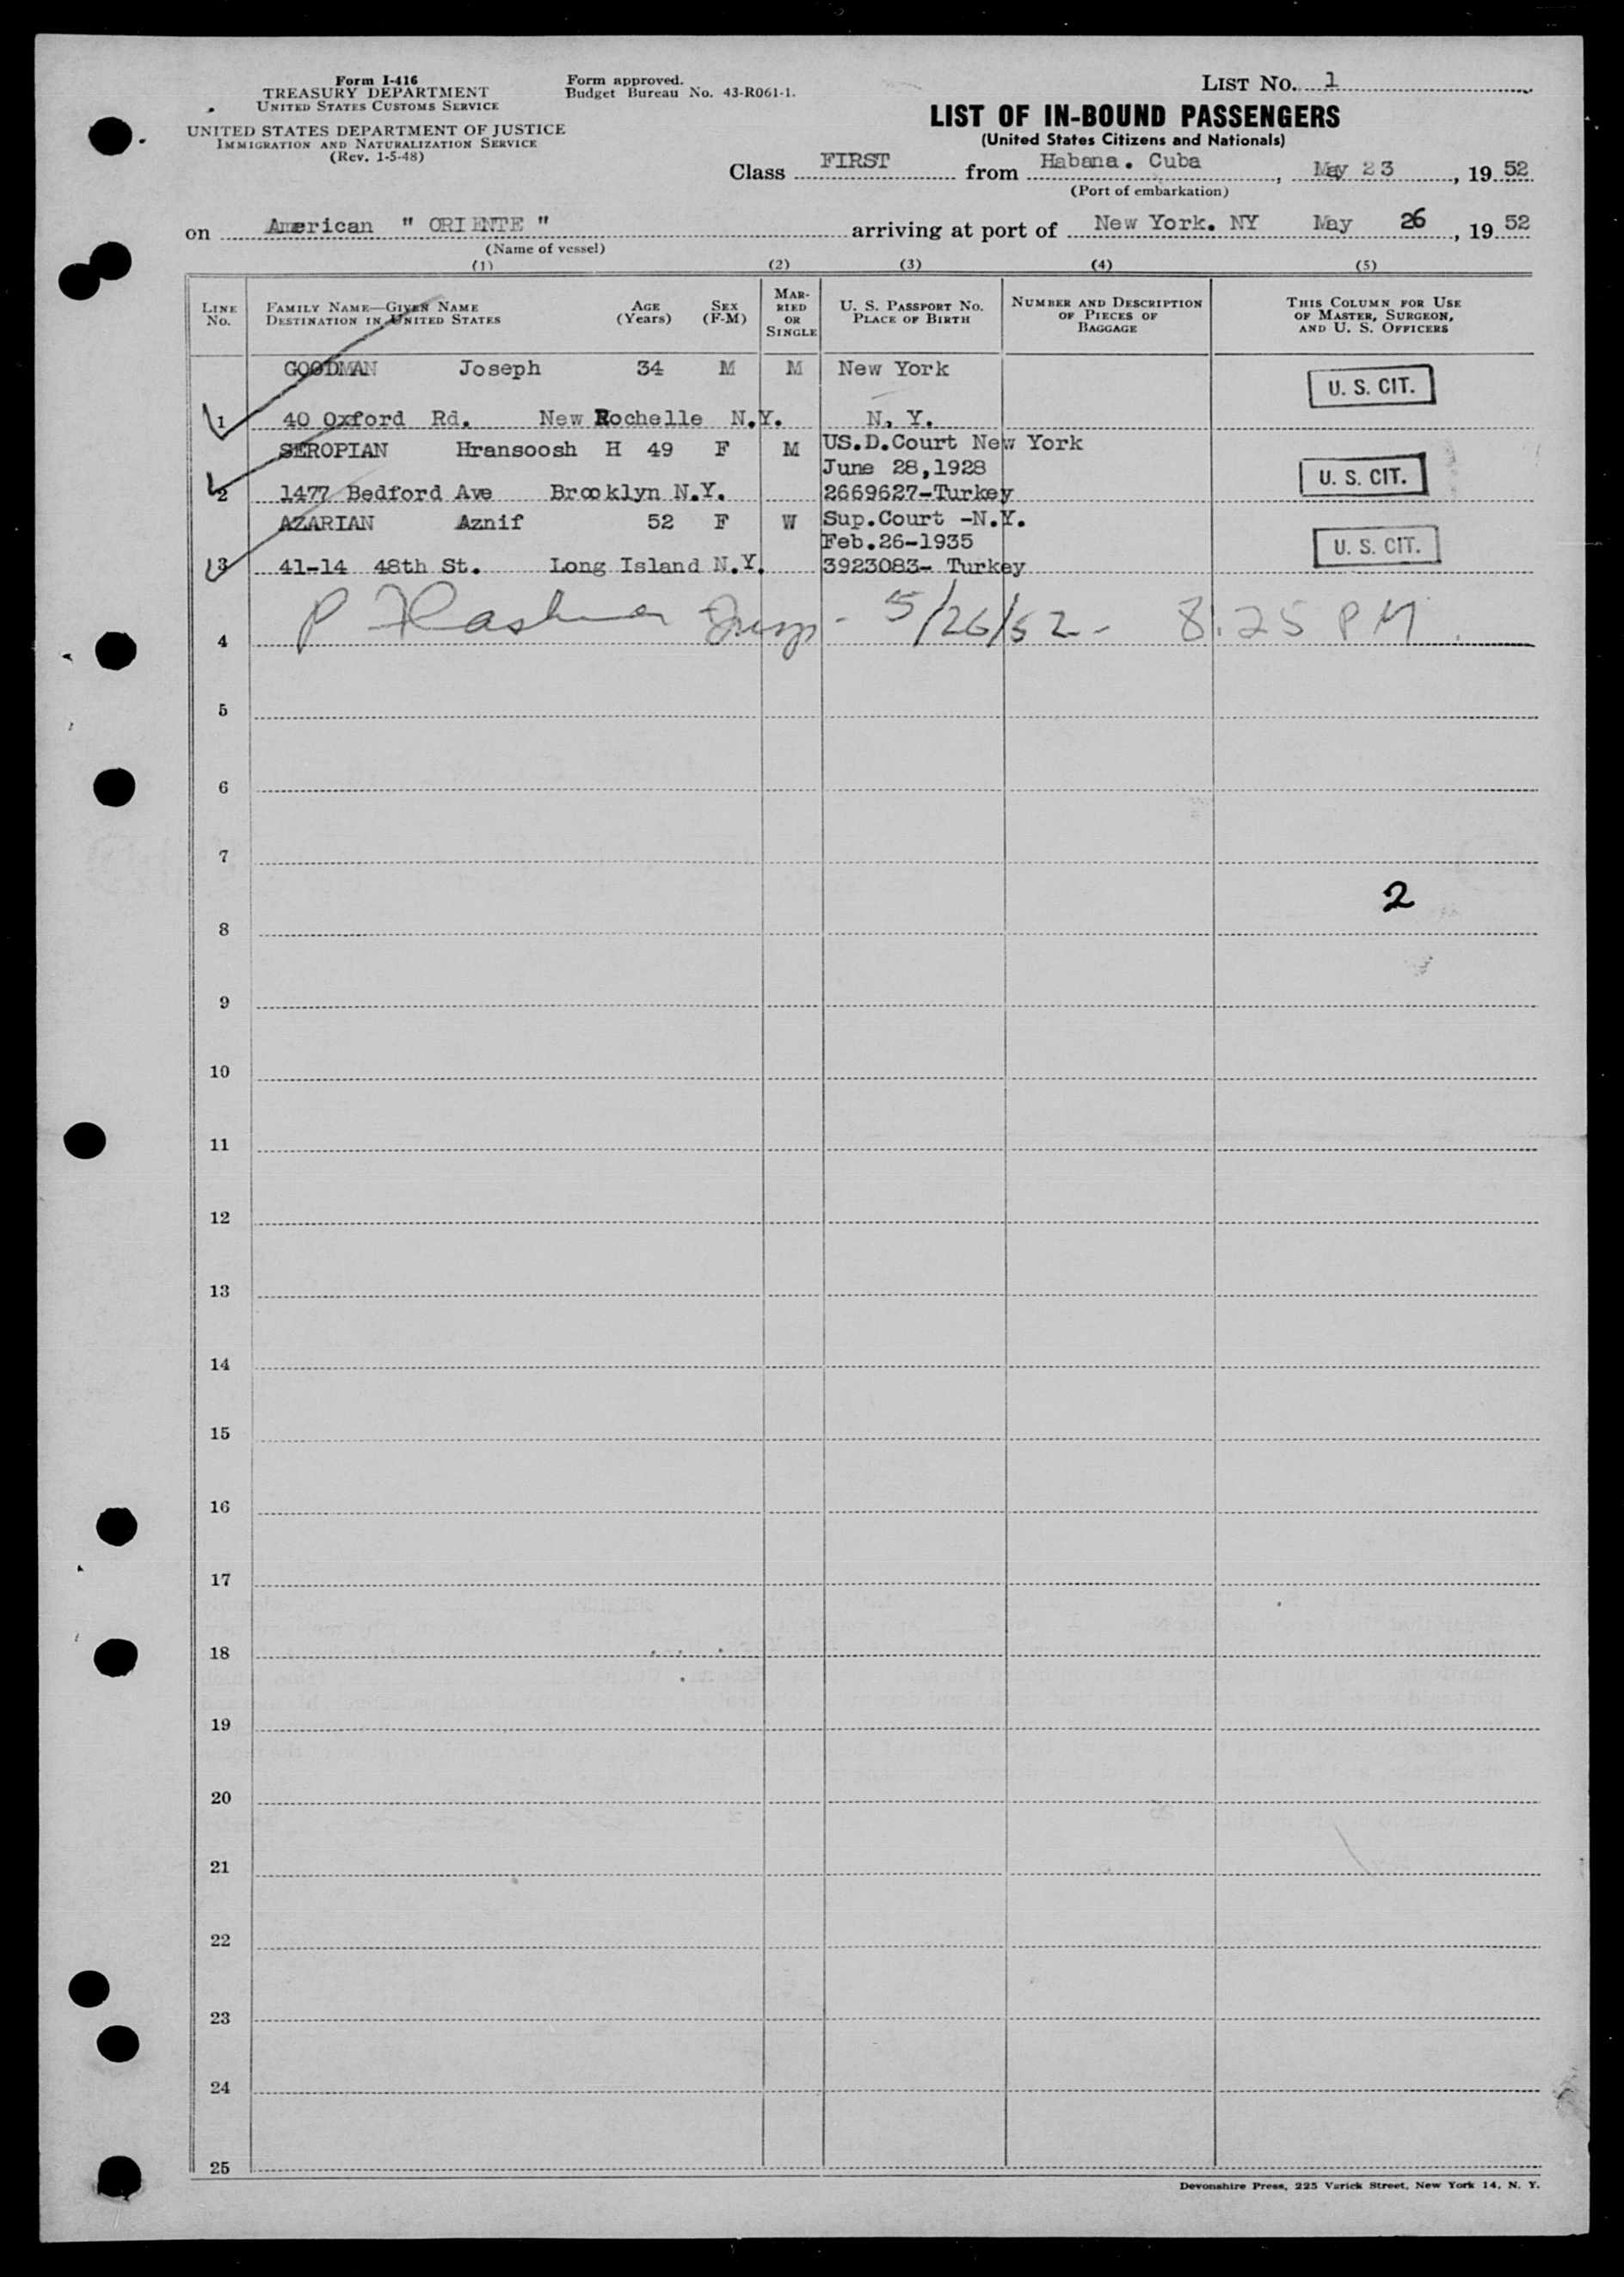 Form I-416
TREASURY DEPARTMENT
UNITED STATES CUSTOMS SERVICE
UNITED STATES DEPARTMENT OF JUSTICE
IMMIGRATION AND NATURALIZATION SERVICE
(Rev. 1-5-48)
Form approved.
Budget Bureau No. 43-R061-1.
LIST NO. 1
LIST OF IN-BOUND PASSENGERS
(United States Citizens and Nationals)
Class FIRST from Habana. Cuba, May 23, 1952
(Port of embarkation)
on American " ORIENTE " arriving at port of New York. NY May 26, 1952
(Name of vessel)
(1) (2) (3) (4) (5)
LINE NO.
FAMILY NAME—GIVEN NAME
DESTINATION IN UNITED STATES
AGE (Years)
SEX (F-M)
MARRIED OR SINGLE
U. S. PASSPORT NO.
PLACE OF BIRTH
NUMBER AND DESCRIPTION OF PIECES OF BAGGAGE
THIS COLUMN FOR USE OF MASTER, SURGEON, AND U. S. OFFICERS
GOODMAN Joseph 34 M M New York
U. S. CIT.
1 40 Oxford Rd. New Rochelle N.Y. N. Y.
SEROPIAN Hransoosh H 49 F M US.D.Court New York
June 28,1928
U. S. CIT.
2 1477 Bedford Ave Brooklyn N.Y. 2669627-Turkey
AZARIAN Aznif 52 F W Sup.Court -N.Y.
Feb.26-1935
U. S. CIT.
3 41-14 48th St. Long Island N.Y. 3923083- Turkey
P Insp - 5/26/52 - 8:25 PM.
4
5
6
7
2
8
9
10
11
12
13
14
15
16
17
18
19
20
21
22
23
24
25
Devonshire Press, 225 Varick Street, New York 14, N. Y.